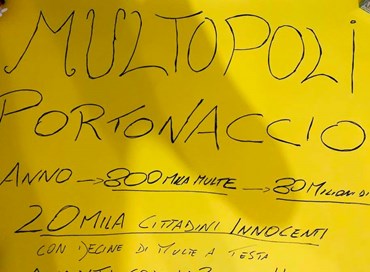 MULTOPOLI
PORTONACCIO
ANNO → 800 MILA MULTE → 80 MILIONI DI
20 MILA CITTADINI INNOCENTI
CON DECINE DI MULTE A TESTA